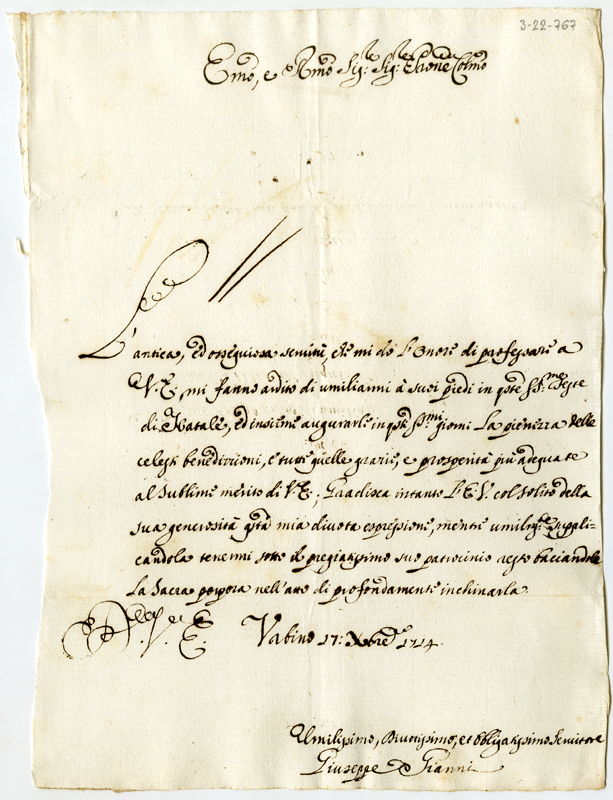 3-22-767
Emo, e Rmo Sig:re Sig:re Prone Colmo
L'antica, ed ossequiosa servitù, che mi do l'onore di professare a
V. E., mi fanno ardito di umiliarmi à suoi piedi in qste SS.me Feste
di Natale, ed insieme augurarle in qsti SS.mi giorni La pienezza delle
celesti benedizioni, e tutte quelle grazie, e prosperità più adequate
al sublime merito di V. E.; Gradisca intanto l'E. V. col solito della
sua generosità qsta mia divota espressione, mentre umilmte suppli=
candola tenermi sotto il pregiatissimo suo patrocinio resto baciandole
La Sacra porpora nell'atto di profondamente inchinarla.
Urbino 17: Xbre 1714.
Umilissimo, Divotissimo, et obbligatissimo Servitore
Giuseppe Gianni